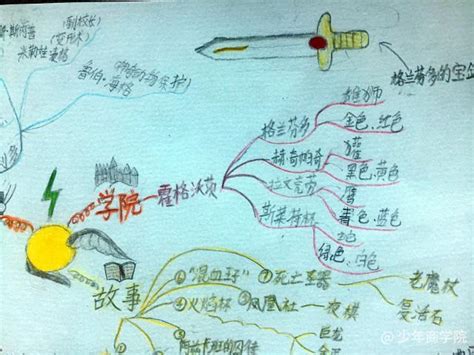 (副校长)
米勒娃·麦格
鲁伯·海格
格兰芬多的宝剑
学院
霍格沃茨
格兰芬多
雄狮
金色、红色
赫奇帕奇
獾
黑色、黄色
拉文克劳
鹰
青色、蓝色
斯莱特林
蛇
绿色、白色
故事
①"混血王子"
⑦死亡圣器
老魔杖
复活石
④火焰杯
⑤凤凰社
夜骐
巨龙
阿兹卡班的囚徒
@少年商学院